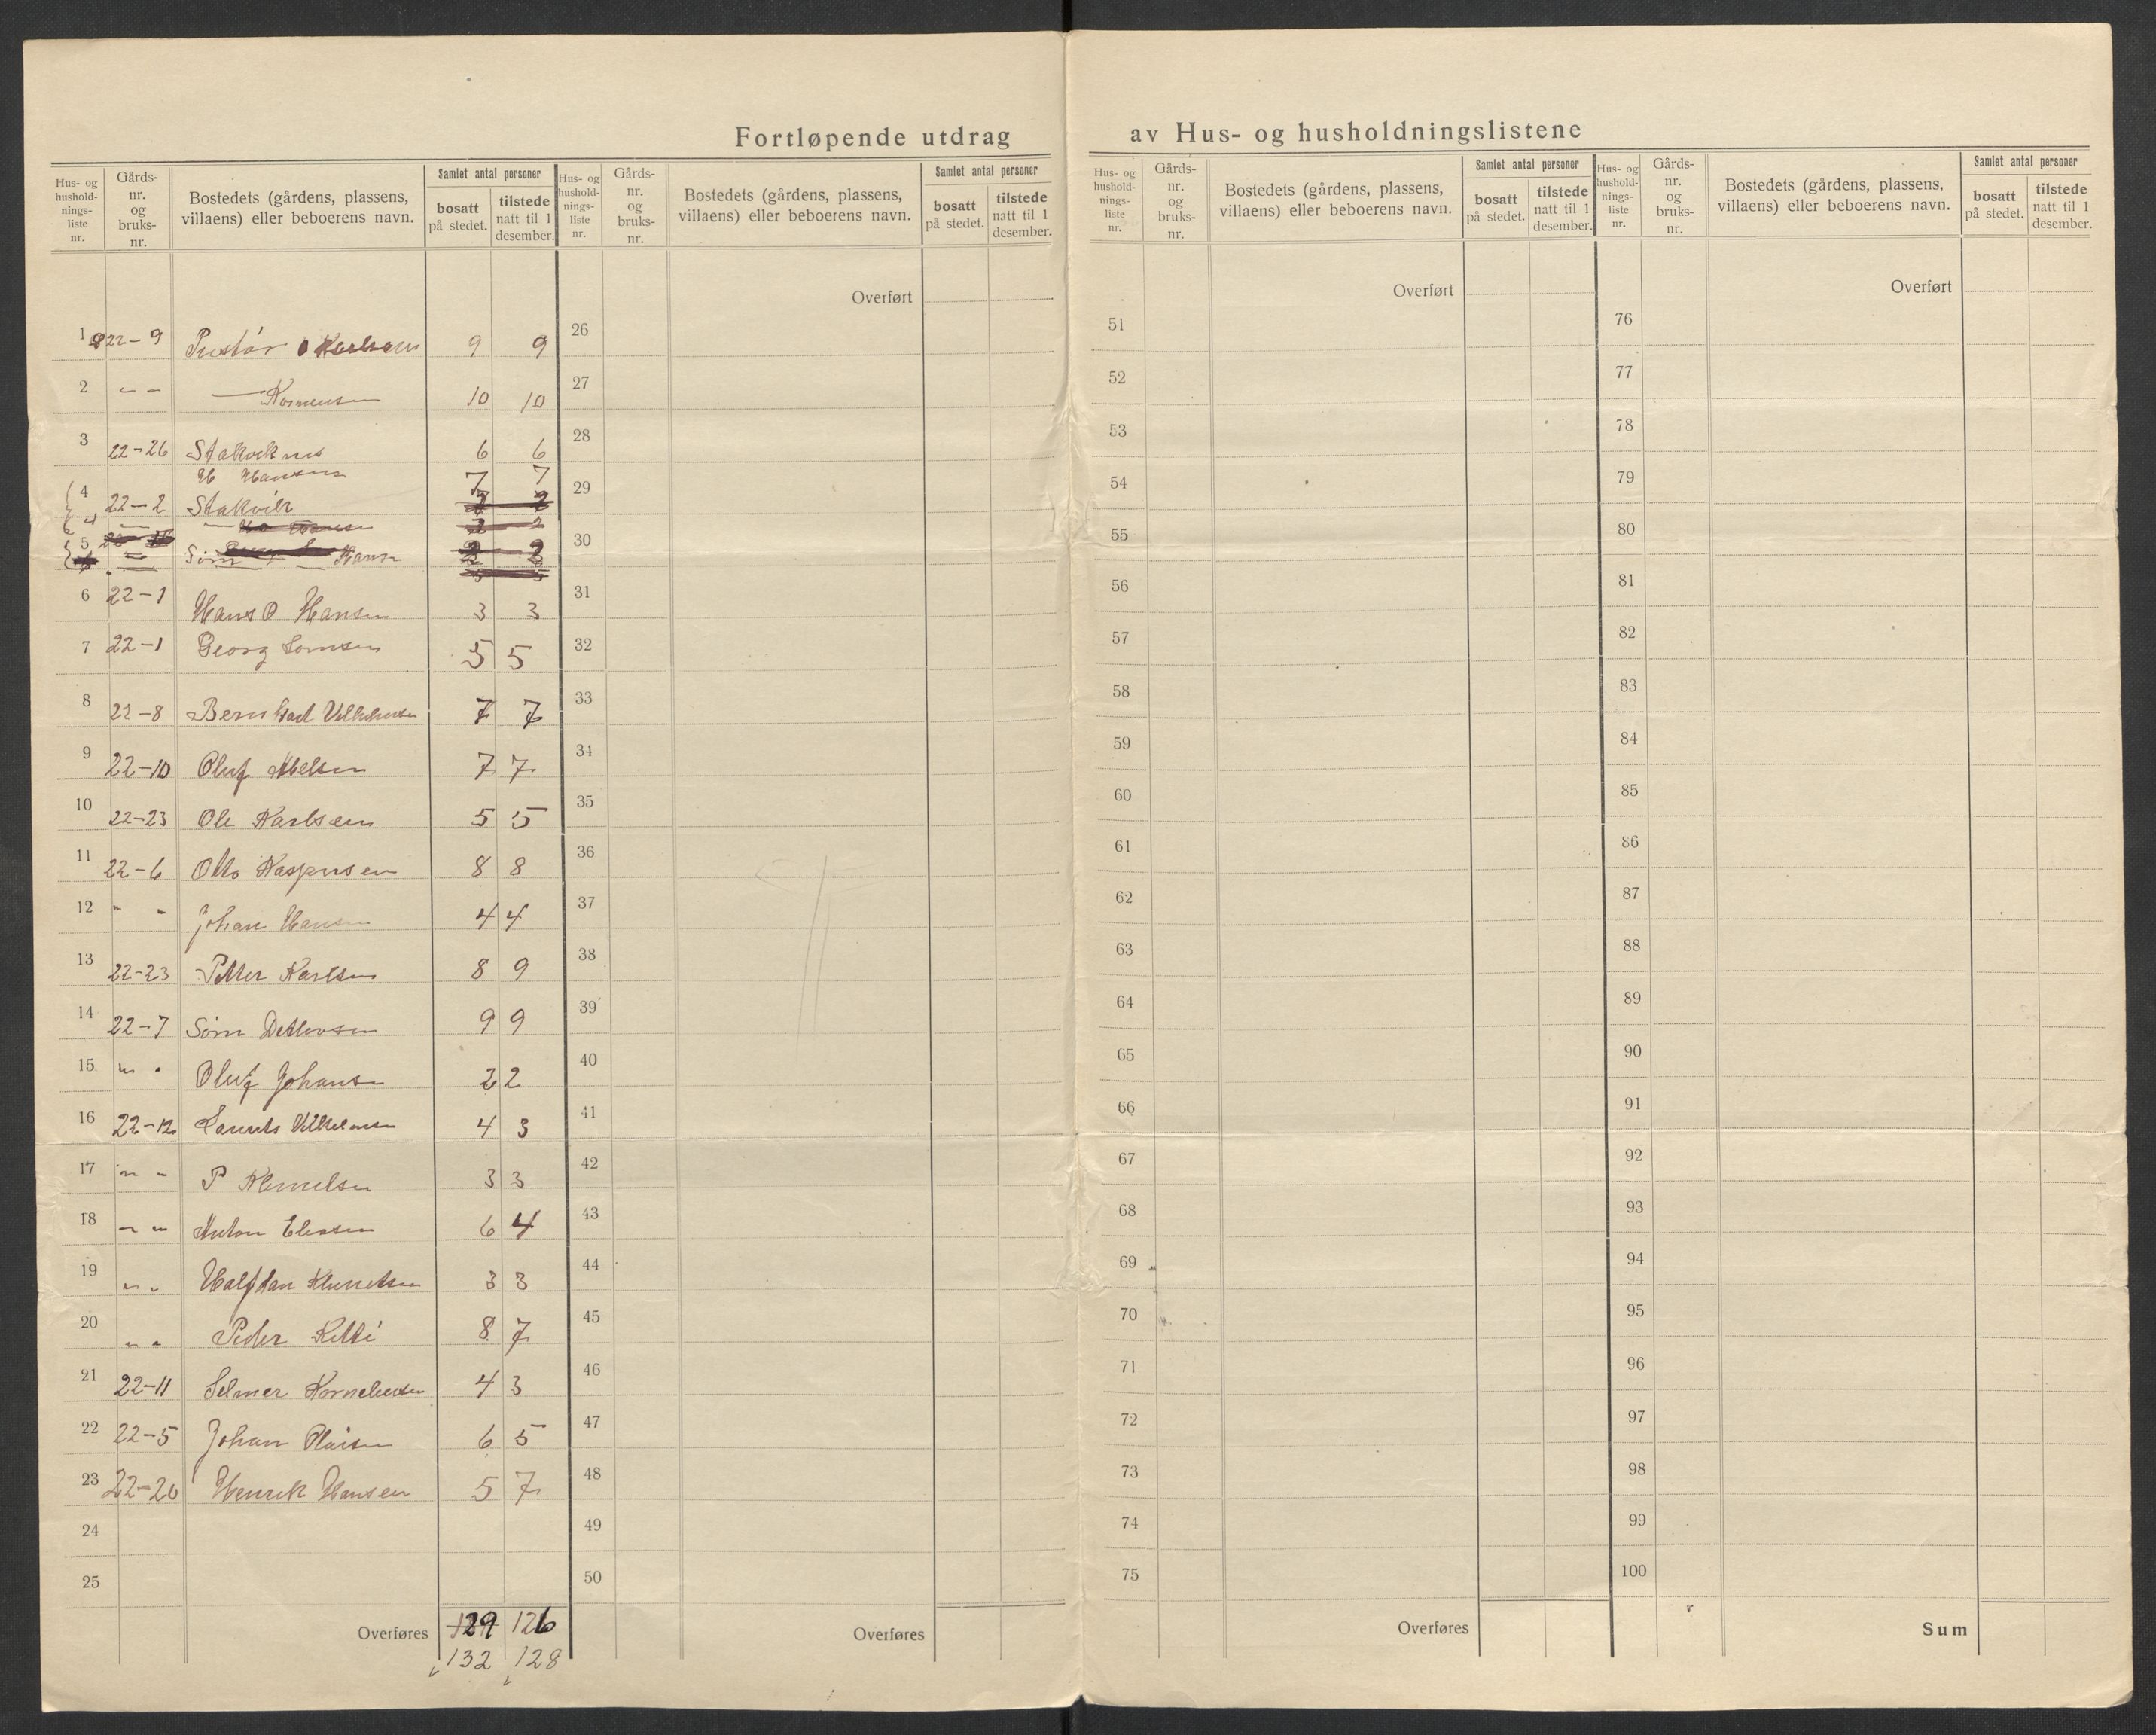 Fortløpende utdrag av Hus- og husholdningslistene
Hus- og hushold-nings-liste nr.
Gårds-nr. og bruks-nr.
Bostedets (gårdens, plassens, villaens) eller beboerens navn.
Samlet antal personer
bosatt på stedet.
tilstede natt til 1 desember.
Hus- og hushold-nings-liste nr.
Gårds-nr. og bruks-nr.
Bostedets (gårdens, plassens, villaens) eller beboerens navn.
Samlet antal personer
bosatt på stedet.
tilstede natt til 1 desember.
Hus- og hushold-nings-liste nr.
Gårds-nr. og bruks-nr.
Bostedets (gårdens, plassens, villaens) eller beboerens navn.
Samlet antal personer
bosatt på stedet.
tilstede natt til 1 desember.
Hus- og hushold-nings-liste nr.
Gårds-nr. og bruks-nr.
Bostedets (gårdens, plassens, villaens) eller beboerens navn.
Samlet antal personer
bosatt på stedet.
tilstede natt til 1 desember.
1 22-9 Karlsen 9 9
2 - - 10 10
3 22-26 6 6
H Hansen 7 7
4 22-2 Stakvik
5 Hansn
6 22-1 Hans O Hansen 3 3
7 22-1 Georg 5 5
8 22-8 Bernhard 7 7
9 22-10 Oluf 7 7
10 22-23 Ole Karlsen 5 5
11 22-6 Otto Kaspersen 8 8
12 " " Johan Hansen 4 4
13 22-23 Petter Karlsen 8 9
14 22-7 Sørn Detlevsen 9 9
15 " " Oluf Johansn 2 2
16 22-12 Laurits 4 3
17 " " P 3 3
18 " " Anton 6 4
19 " " Halfdan 3 3
20 " " Peder 8 7
21 22-11 Selmer Korneliusen 4 3
22 22-5 Johan 6 5
23 22-20 Henrik Hansen 5 7
24
25
Overføres 129 126
132 128
Overført
26
27
28
29
30
31
32
33
34
35
36
37
38
39
40
41
42
43
44
45
46
47
48
49
50
Overføres
Overført
51
52
53
54
55
56
57
58
59
60
61
62
63
64
65
66
67
68
69
70
71
72
73
74
75
Overføres
Overført
76
77
78
79
80
81
82
83
84
85
86
87
88
89
90
91
92
93
94
95
96
97
98
99
100
Sum